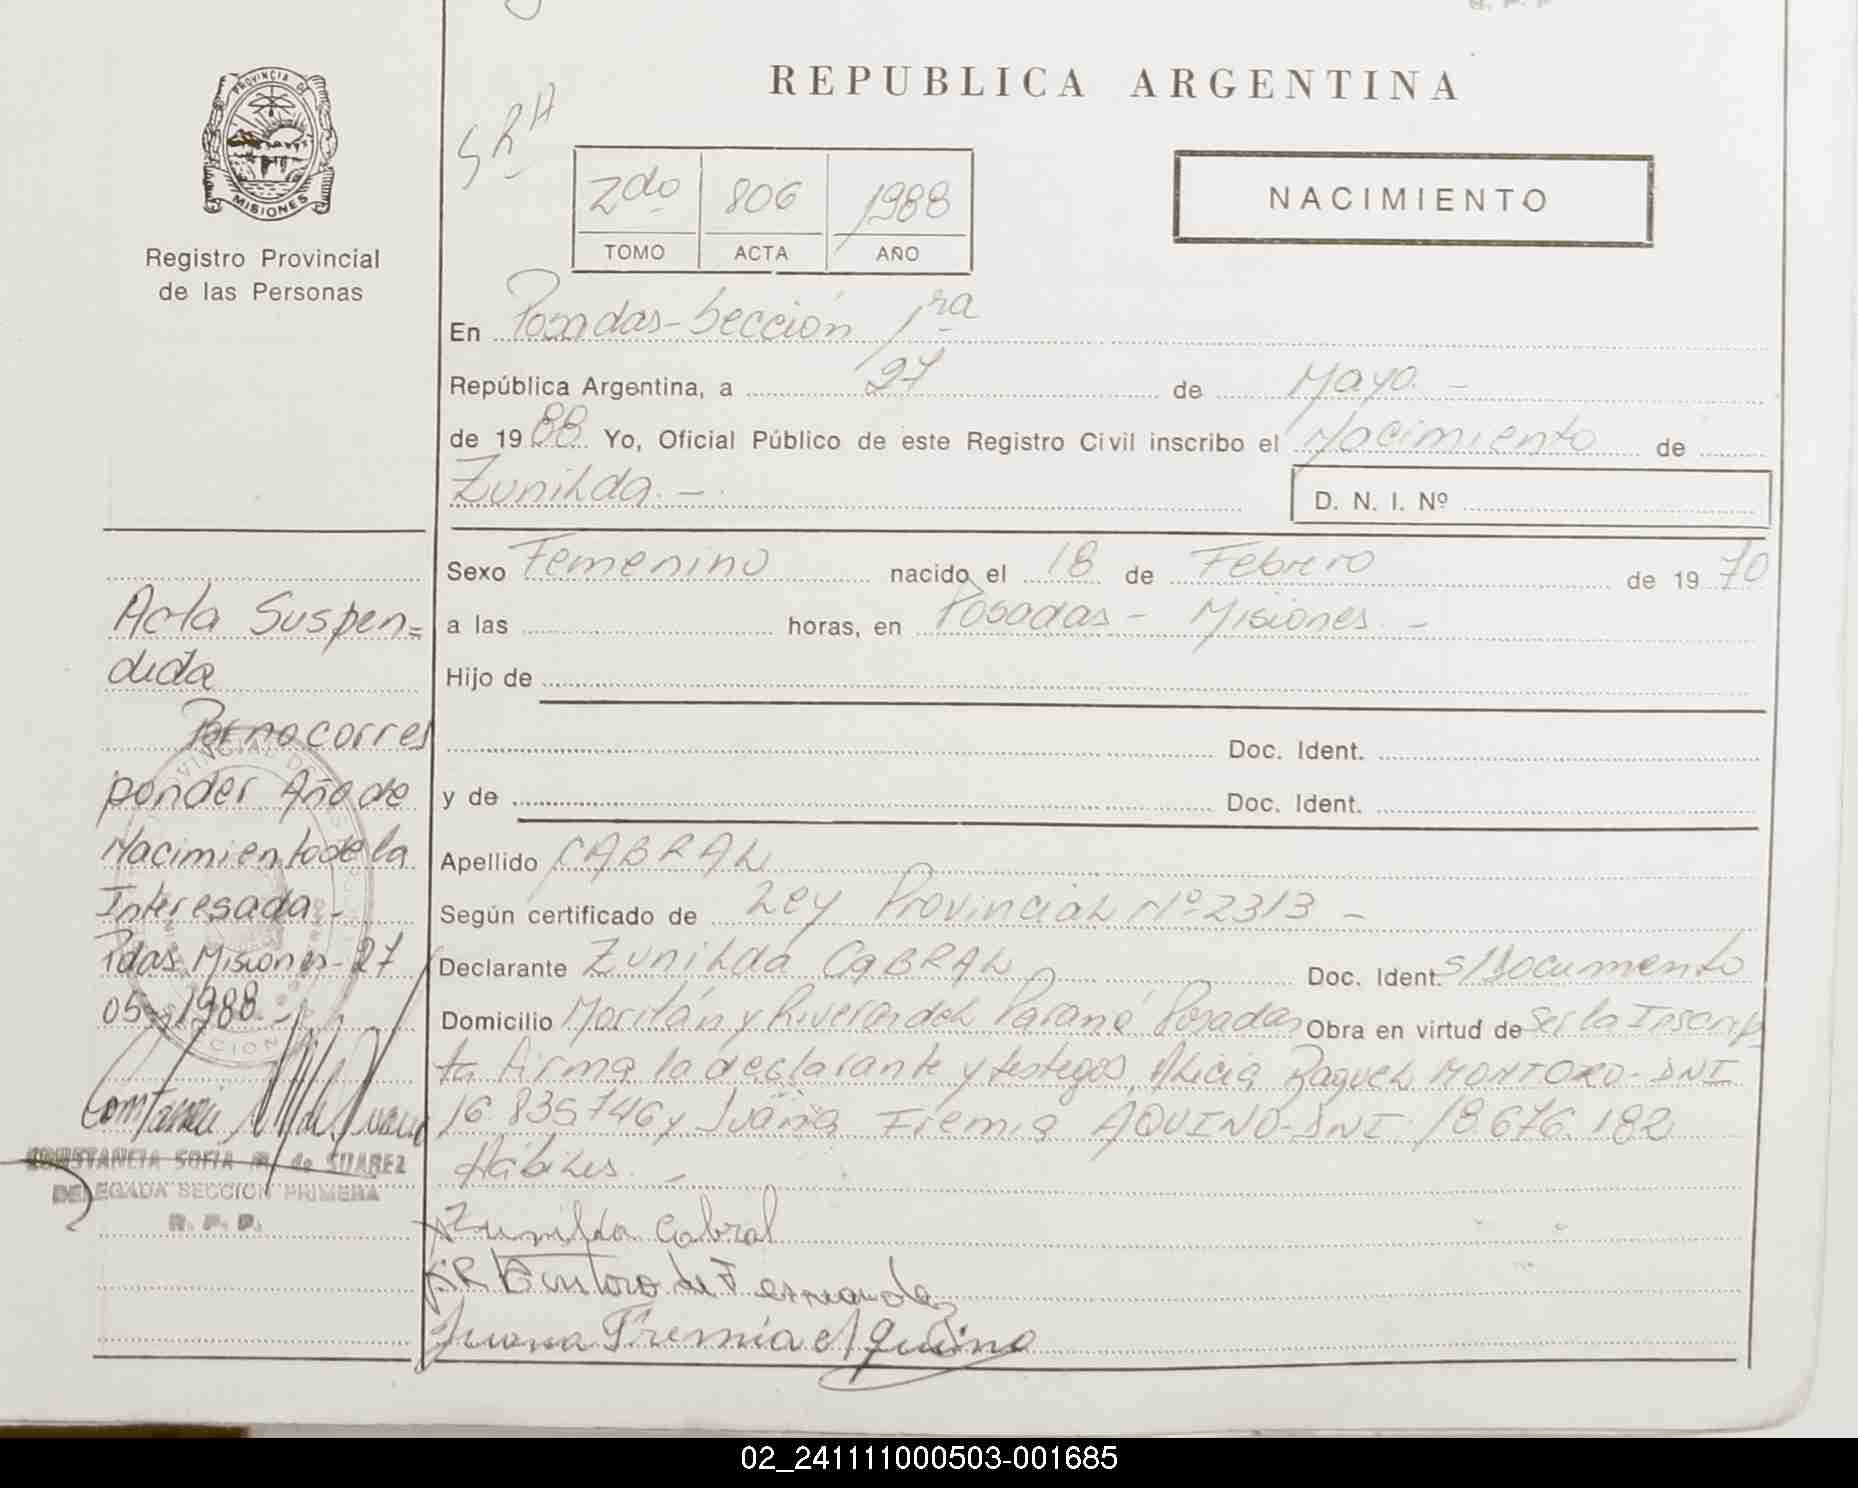 REPUBLICA ARGENTINA
PROVINCIA DE
MISIONES
Registro Provincial
de las Personas
2do 806 1988
TOMO ACTA AÑO
NACIMIENTO
En Posadas-Sección 1ra
República Argentina, a 27 de Mayo.-
de 1988 Yo, Oficial Público de este Registro Civil inscribo el Nacimiento de
Zunilda.-.
D. N. I. Nº
Sexo Femenino nacido el 18 de Febrero de 1970
a las horas, en Posadas - Misiones.-
Hijo de
Doc. Ident.
y de Doc. Ident.
Apellido CABRAL
Según certificado de Ley Provincial Nº 2313 -
Declarante Zunilda CABRAL Doc. Ident. S/Documento
Domicilio y Riveras del Paraná Posadas Obra en virtud de Ser la Inscrip
ta firma la declarante y testigos, Alicia Raquel MONTORO-DNI
16.835746 y Juana Fremia AQUINO-DNI. 18.676.182
Hábiles. -
Zunilda Cabral
de Fernandez
Juana Fremia Aquino
Acta Suspen=
dida
Por no corres
ponder Año de
Nacimiento de la
Interesada -
Pdas. Misiones- 27
05- 1988.-
CONSTANCIA SOFIA M. de SUAREZ
DELEGADA SECCION PRIMERA
R. P. P.
02_241111000503-001685